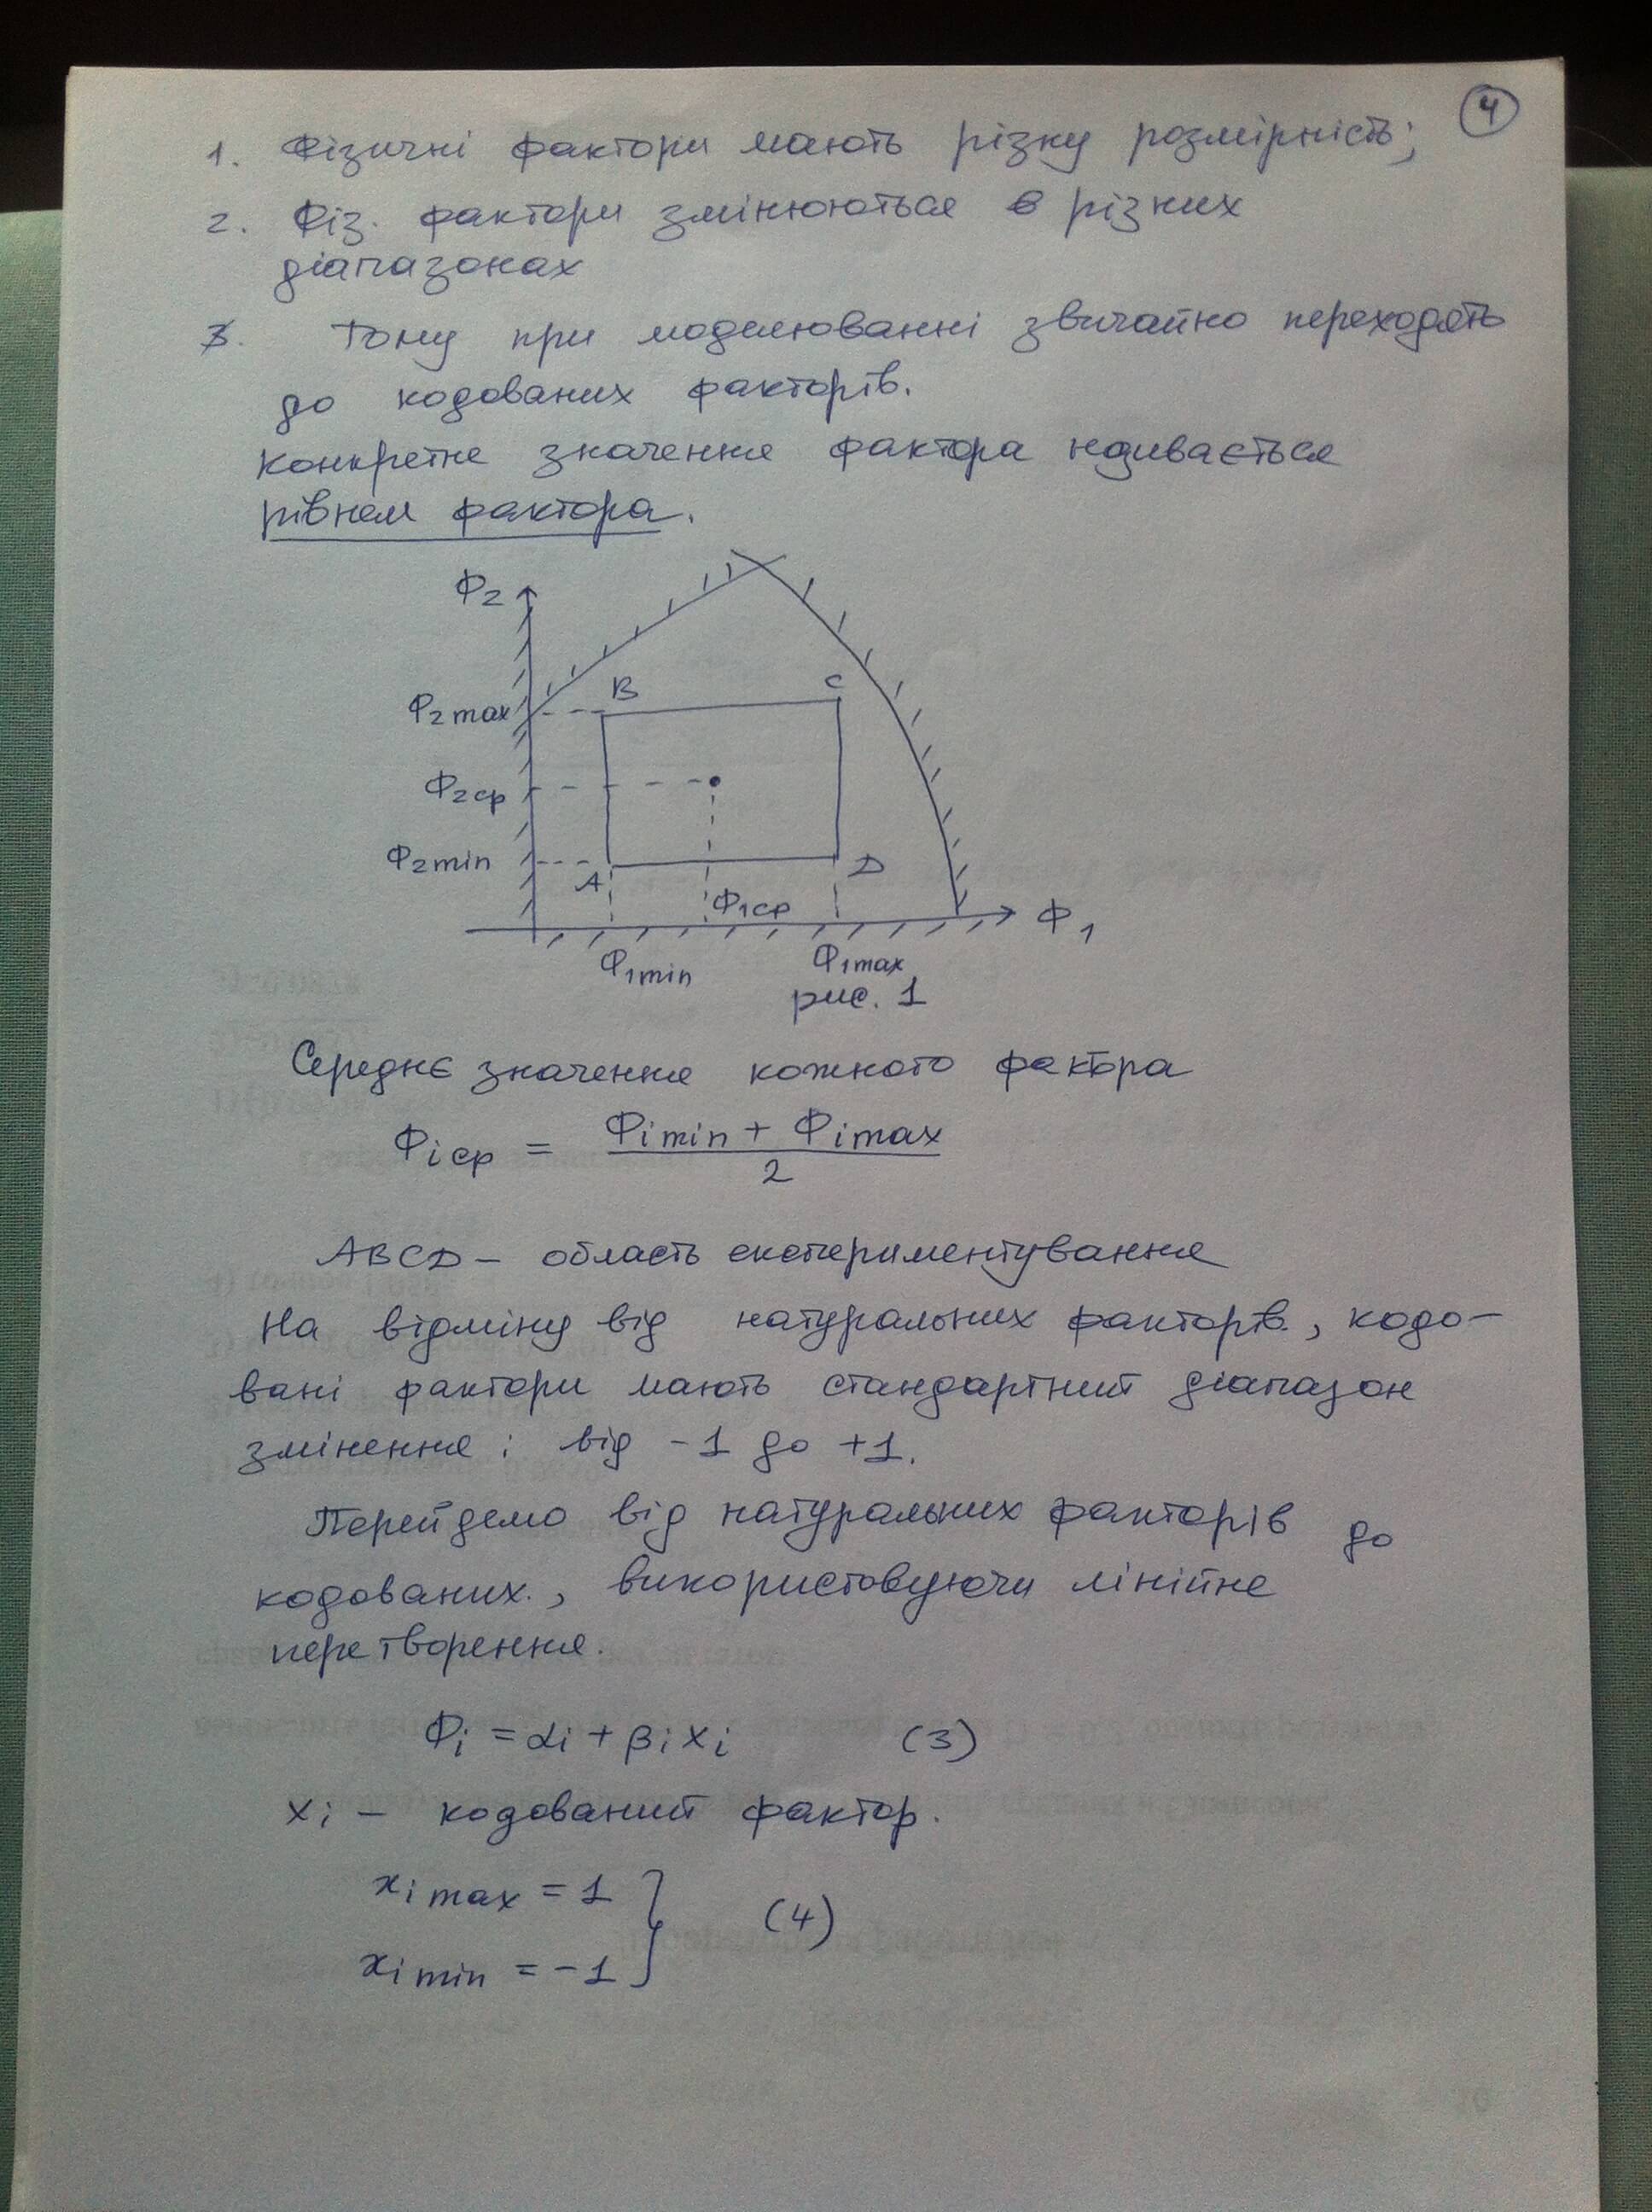 4
1. Фізичні фактори мають різну розмірність;
2. Фіз. фактори змінюються в різних
діапазонах
3. Тому при моделюванні звичайно переходять
до кодованих факторів.
конкретне значення фактора називається
рівнем фактора.
Ф2
B C
Ф2 max
Ф2 ср
Ф2 min
A D
Ф1 ср
Ф1
Ф1 min Ф1 max
рис. 1
Середнє значення кожного фактора
Фi ср = (Фi min + Фi max) / 2
ABCD – область експериментування
На відміну від натуральних факторів, кодо–
вані фактори мають стандартний діапазон
змінення: від -1 до +1.
Перейдемо від натуральних факторів до
кодованих., використовуючи лінійне
перетворення.
Фi = αi + βi xi (3)
xi – кодований фактор.
xi max = 1
(4)
xi min = -1